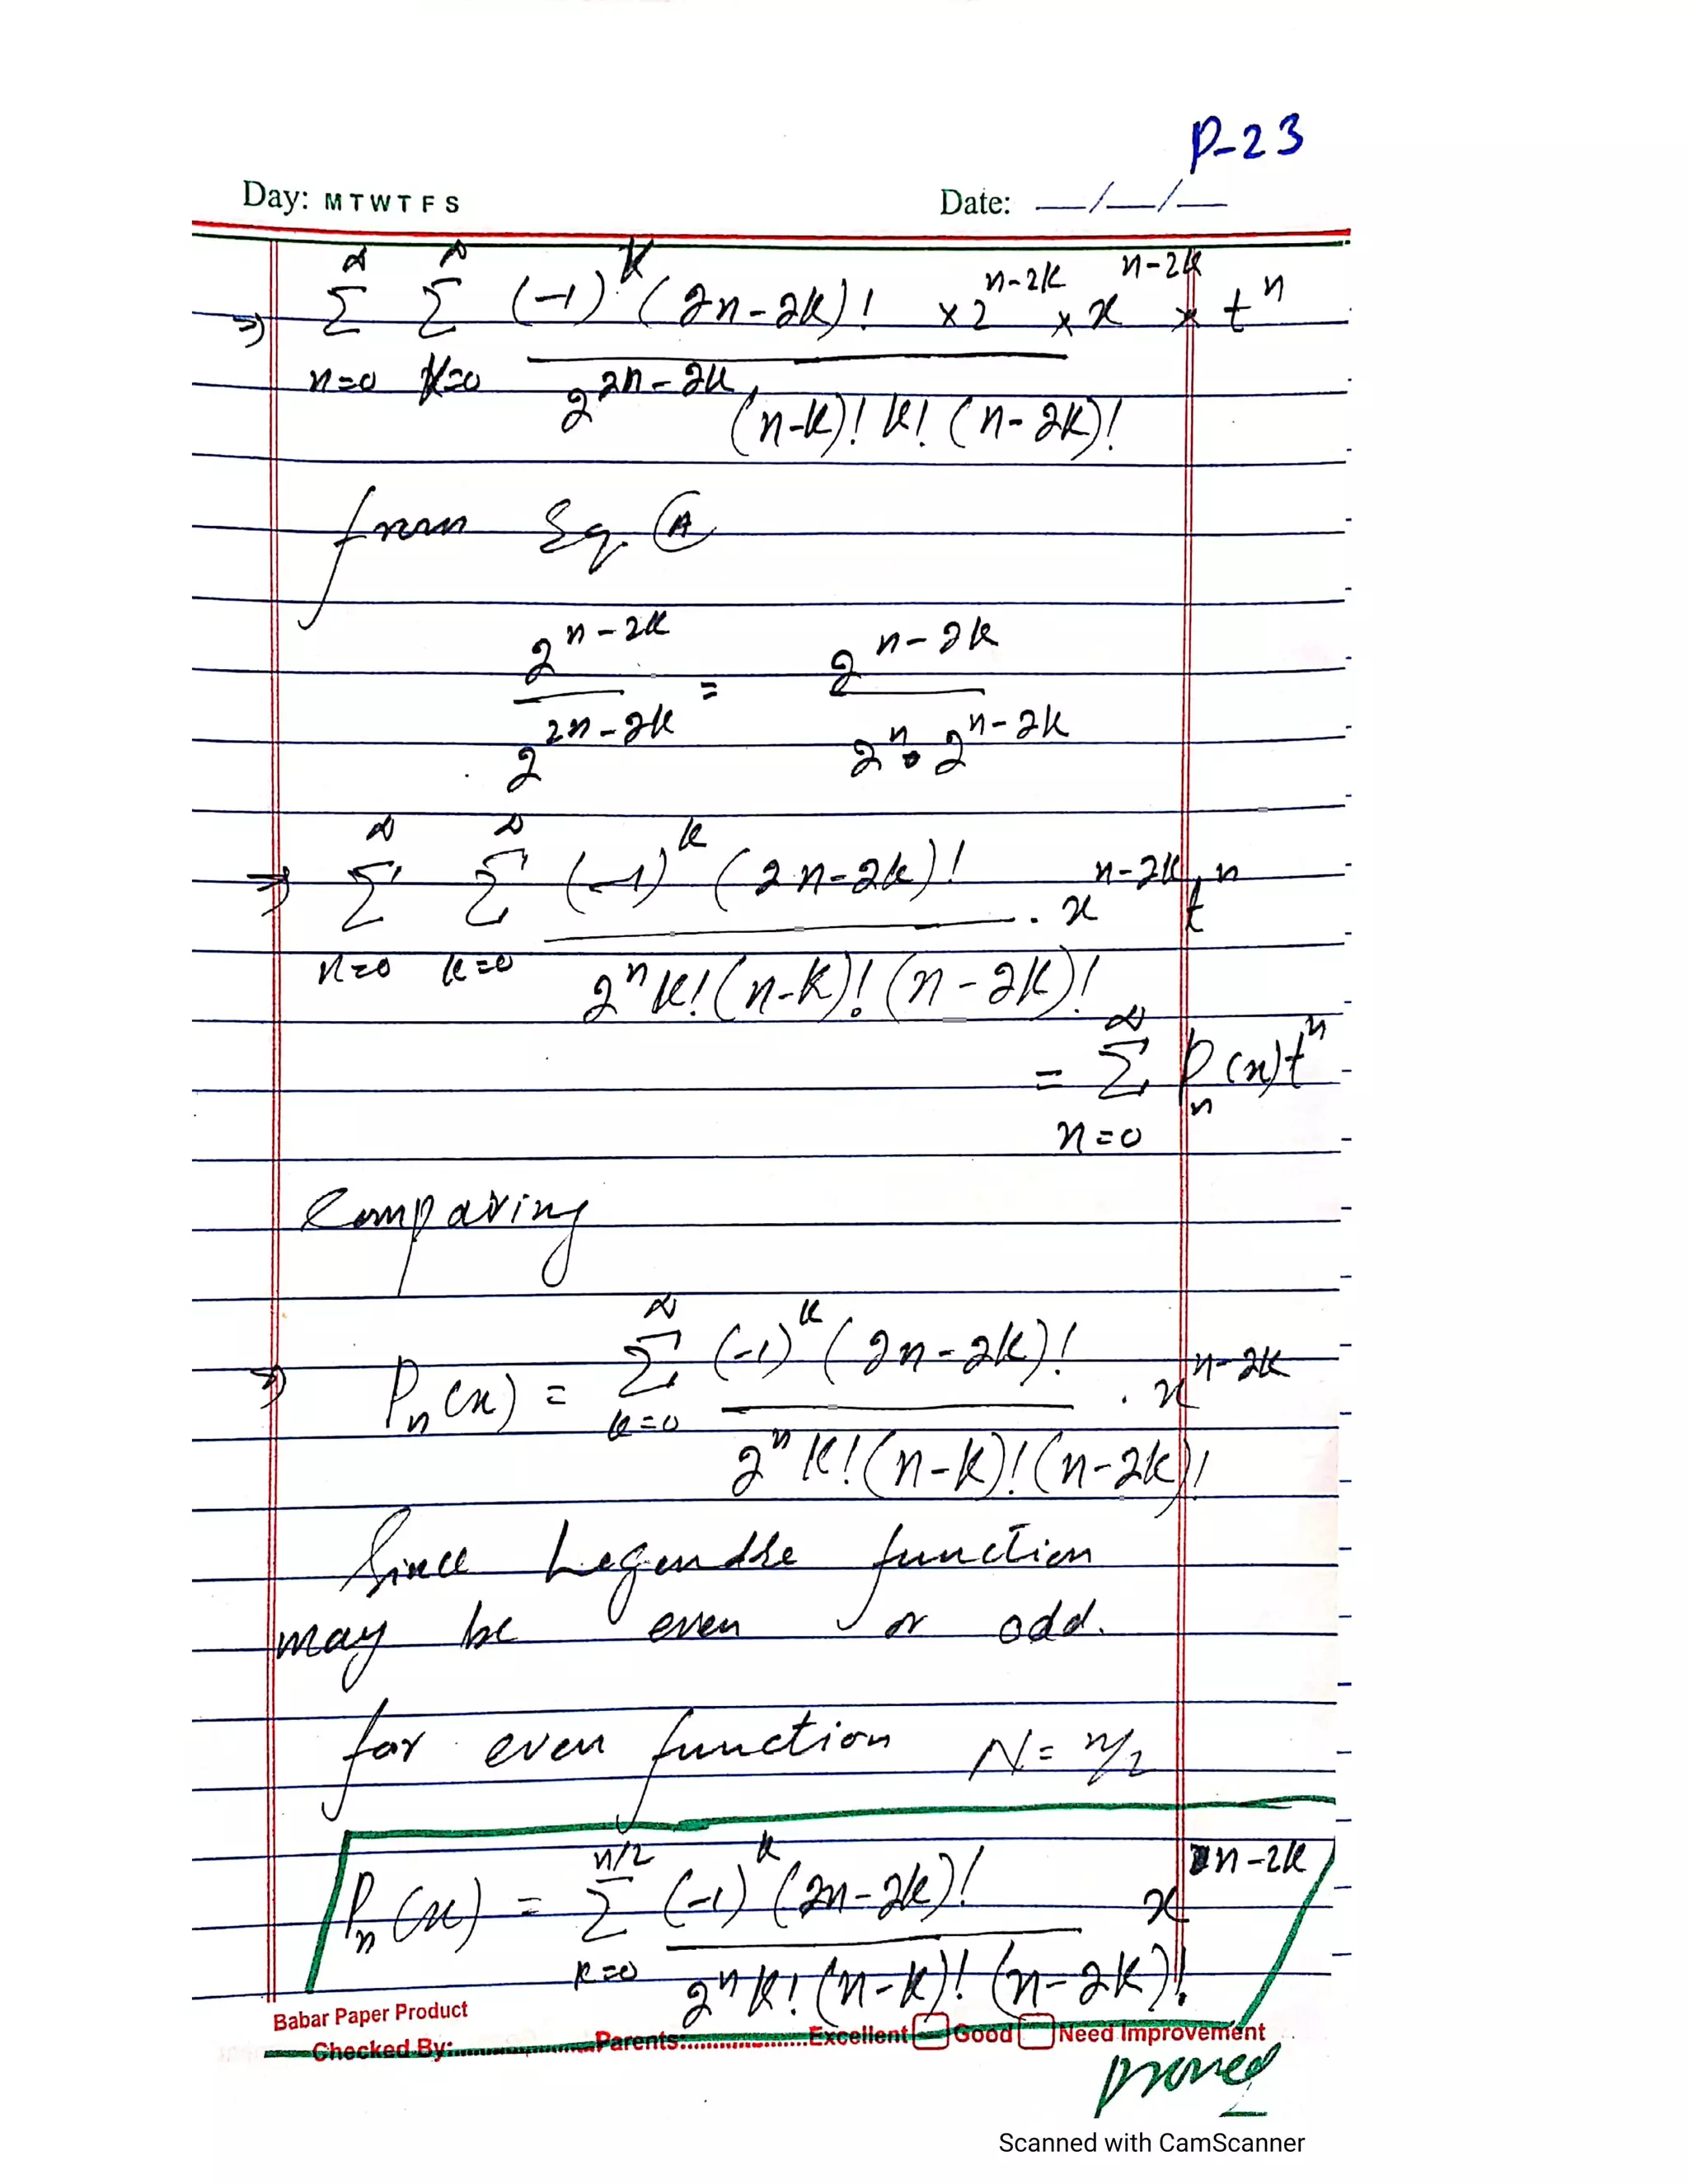 P-23
Day: M T W T F S Date: __/__/__
⇒ ∞Σn=0 ∞Σk=0 (-1)^k (2n-2k)! × 2^{n-2k} × x^{n-2k} × t^n
2^{2n-2k} (n-k)! k! (n-2k)!
from Eq. Ⓐ
2^{n-2k} / 2^{2n-2k} = 2^{n-2k} / 2^n · 2^{n-2k}
⇒ ∞Σn=0 ∞Σk=0 (-1)^k (2n-2k)! . x^{n-2k} t^n
2^n k! (n-k)! (n-2k)!
= ∞Σn=0 P_n(x) t^n
Comparing
⇒ P_n(x) = ∞Σk=0 (-1)^k (2n-2k)! . x^{n-2k}
2^n k! (n-k)! (n-2k)!
Since Legendre function
may be even or odd.
for even function N = n/2
P_n(x) = n/2Σk=0 (-1)^k (2n-2k)! x^{n-2k}
2^n k! (n-k)! (n-2k)!
Babar Paper Product
Checked By:..............Parents:..............Excellent Good Need Improvement
proved
Scanned with CamScanner